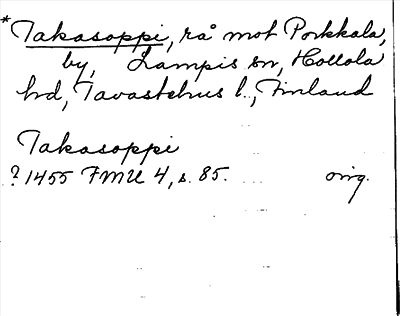 *Takasoppi, rå mot Porkkala,
by, Lampis sn, Hollola
hrd, Tavastehus l., Finland
Takasoppi
? 1455 FMU 4, s. 85. orig.